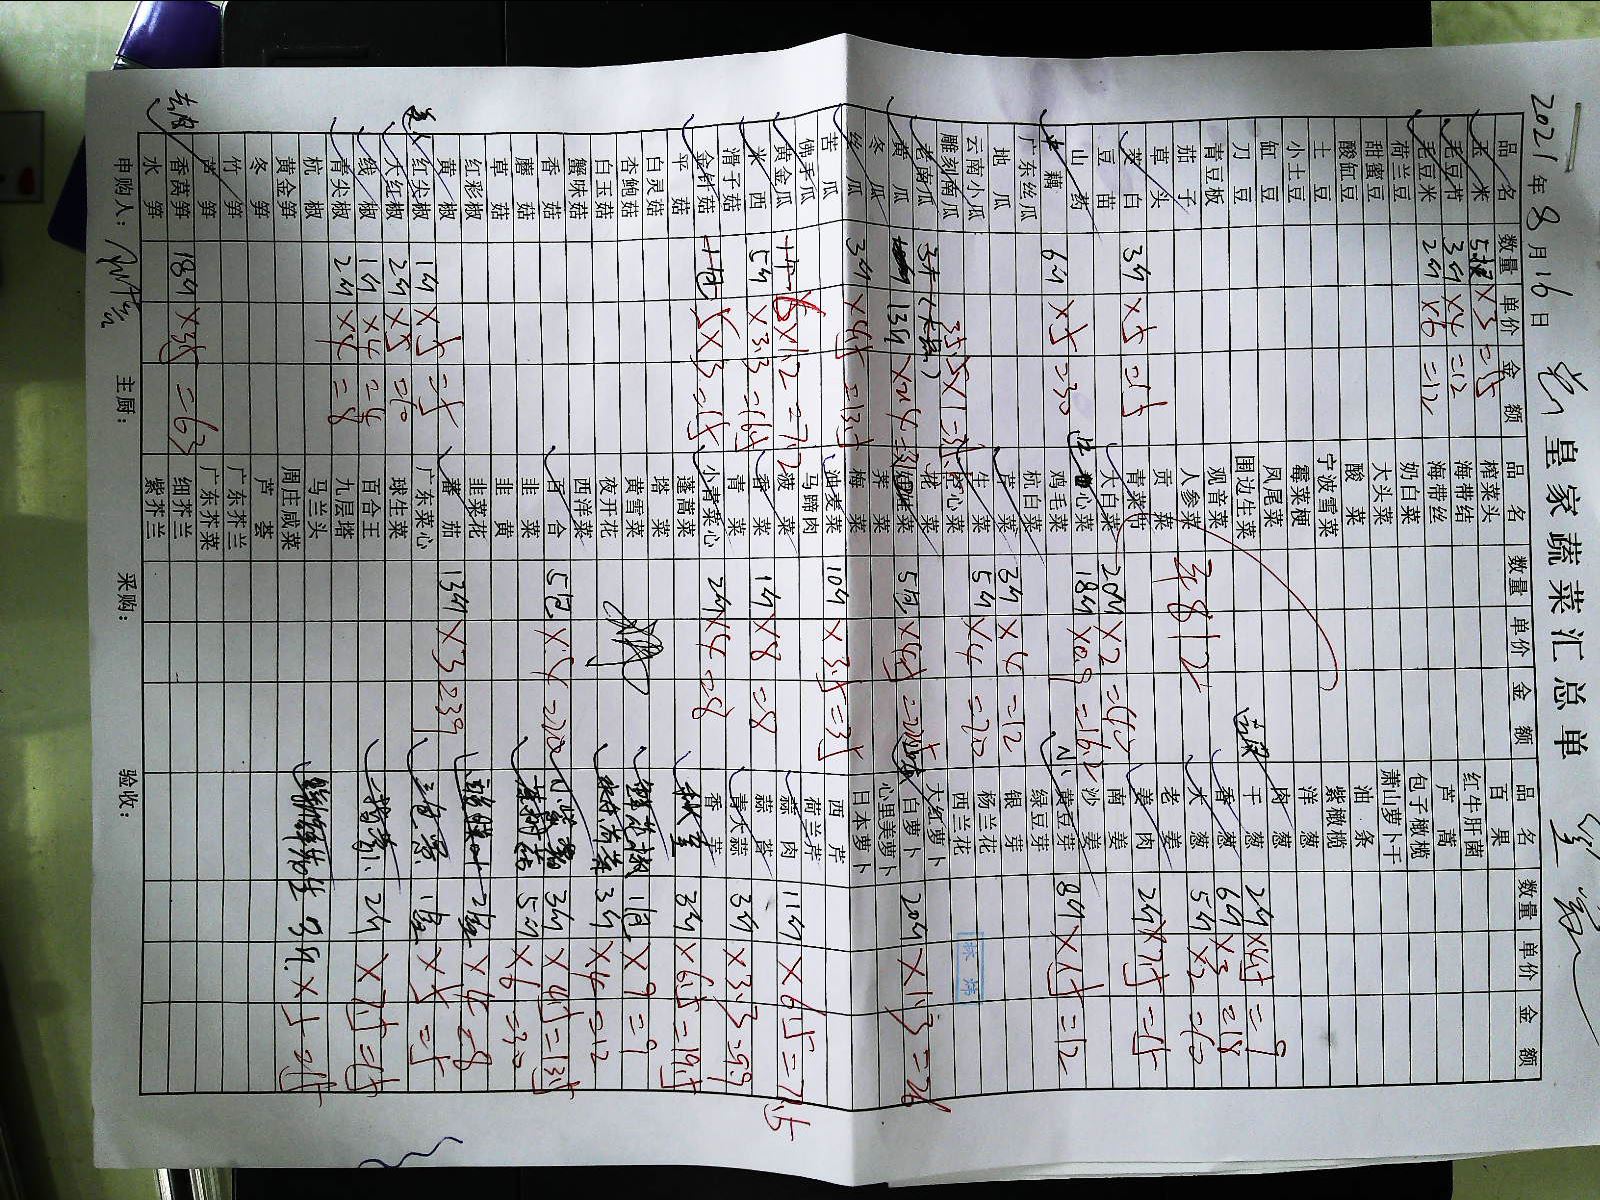 皇家蔬菜汇总单
2021年8月16日
品名 数量 单价 金额 品名 数量 单价 金额 品名 数量 单价 金额
玉米 5根 ×3 =15 榨菜头 百果
毛豆节 3斤 ×4 =12 海带结 红牛肝菌
毛豆米 2斤 ×6 =12 海带丝 芦蒿
荷兰豆 奶白菜 包子橄榄
甜蜜豆 大头菜 萧山萝卜干
酸缸豆 酸菜 油条
土豆 宁波雪菜 紫橄榄
小土豆 霉菜梗 洋葱
缸豆 凤尾菜 肉葱
刀豆 围边生菜 干葱 2斤 ×4.5 =9
青豆板 观音菜 香葱 6斤 ×3 =18
茄子 人参菜 大葱 5斤 ×2 =10
草头 贡菜 老姜
茭白 3斤 ×5 =15 青菜 肉姜 2斤 ×7.5 =15
豆苗 大白菜 20斤 ×2 =40 南姜
山药 心菜 18斤 ×0.9 =16.2 沙姜
藕 6斤 ×5 =30 鸡毛菜 黄豆芽 8斤 ×1.5 =12
广东丝瓜 杭白菜 绿豆芽
地瓜 芹菜 3斤 ×4 =12 银芽
云南小瓜 生菜 5斤 ×4 =20 杨兰花
雕刻南瓜 心菜 西兰花
老南瓜 花菜 大红萝卜
黄瓜 13斤 ×2.4 娃娃菜 5包 ×4.5 白萝卜 20斤 ×1.3 =26
冬瓜 荠菜 心里美萝卜
丝瓜 3斤 ×4.5 =13.5 梅菜 日本萝卜
苦瓜 油麦菜 10斤 ×3.5 =35 西芹
佛手瓜 马蹄肉 荷兰芹
黄金瓜 6×12 =72 菠菜 蒜肉 11斤 ×6.5 =71.5
米西 5斤 ×3.3 香菜 1斤 ×8 =8 蒜苔
滑子菇 青菜 青大蒜 3斤 ×3.3 =9.9
金针菇 5×3 =15 小青菜心 2斤 ×4 =8 香芹
平菇 蓬蒿菜 秋葵 3斤 ×6.5 =19.5
白灵菇 塔菜
杏鲍菇 黄雪菜 1包 ×9 =9
白玉菇 夜开花 3斤 ×4 =12
蟹味菇 西洋菜
香菇 百合 5包 ×4 =20 3斤 ×4.5 =13.5
蘑菇 韭菜 5斤 ×6 =30
草菇 韭黄
红彩椒 韭菜花 2盒 ×4 =8
黄椒 蕃茄 13斤 ×3 =39
红尖椒 1斤 ×5 =5 广东菜心 1盒 ×5 =5
大红椒 2斤 ×5 =10 球生菜
线椒 1斤 ×4 =4 百合王 2斤 ×7.5 =15
青尖椒 2斤 ×4 =8 九层塔
杭椒 马兰头
黄金笋 周庄咸菜 9斤
冬笋 芦荟
竹笋 广东芥兰
芦笋 广东芥菜
香莴笋 18斤 ×3.5 =63 细芥兰
水笋 紫芥兰
申购人： 主厨： 采购： 验收：